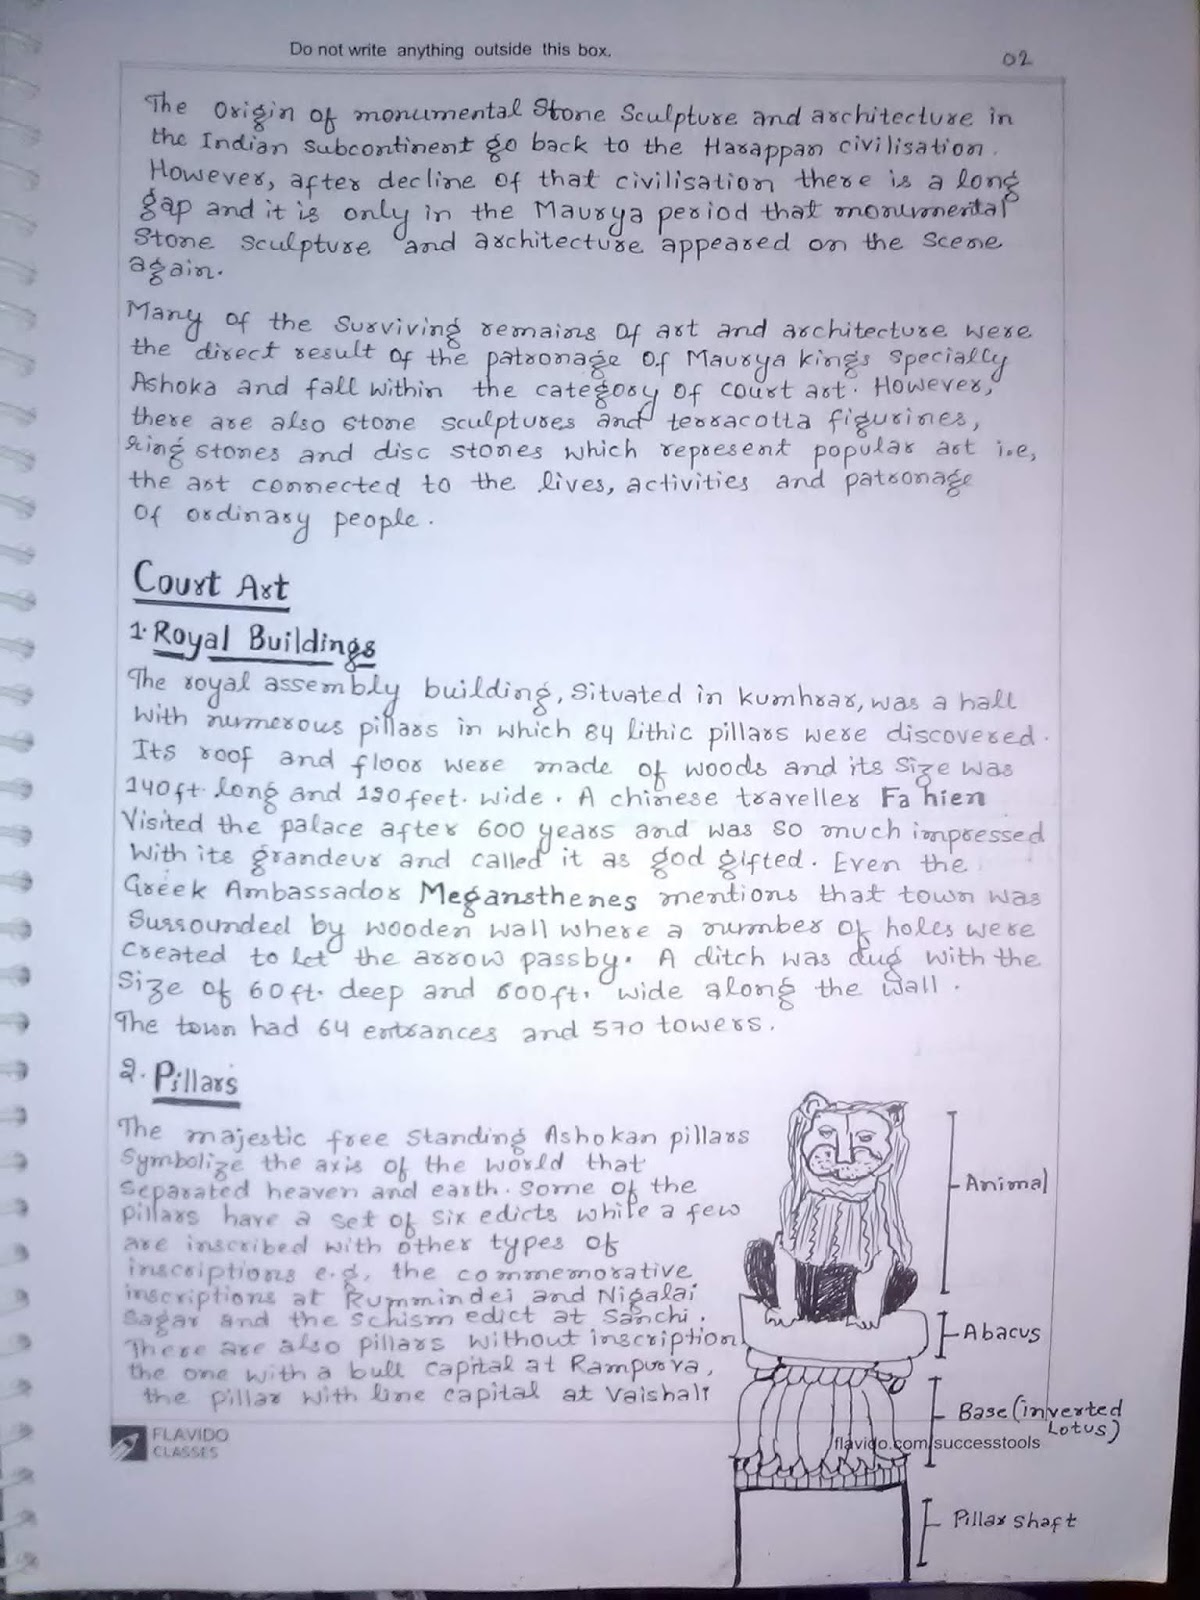 Do not write anything outside this box.
02
The Origin of monumental Stone Sculpture and architecture in
the Indian Subcontinent go back to the Harappan civilisation.
However, after decline of that civilisation there is a long
gap and it is only in the Maurya period that monumental
Stone Sculpture and architecture appeared on the Scene
again.
Many of the Surviving remains of art and architecture were
the direct result of the patronage of Maurya kings Specially
Ashoka and fall within the category of court art. However,
there are also stone sculptures and terracotta figurines,
ring stones and disc stones which represent popular art i.e,
the art connected to the lives, activities and patronage
of ordinary people.
Court Art
1. Royal Buildings
The royal assembly building, Situated in kumhrar, was a hall
With numerous pillars in which 84 lithic pillars were discovered.
Its roof and floor were made of woods and its Size was
140ft. long and 120feet. wide. A chinese traveller Fa hien
Visited the palace after 600 years and was so much impressed
With its grandeur and called it as god gifted. Even the
Greek Ambassador Megansthenes mentions that town was
Surrounded by wooden wall where a number of holes were
Created to let the arrow passby. A ditch was dug with the
Size of 60ft. deep and 600ft. wide along the wall.
The town had 64 entrances and 570 towers.
2. Pillars
The majestic free Standing Ashokan pillars
Symbolize the axis of the world that
Separated heaven and earth. Some of the
pillars have a set of six edicts while a few
are inscribed with other types of
inscriptions e.g, the commemorative
inscriptions at Rummindei and Nigalai
Sagar and the Schism edict at Sanchi.
There are also pillars without inscription
the one with a bull capital at Rampurva,
the pillar with line capital at Vaishali
Animal
Abacus
Base (inverted
Lotus)
Pillar shaft
FLAVIDO
CLASSES
flavido.com/successtools